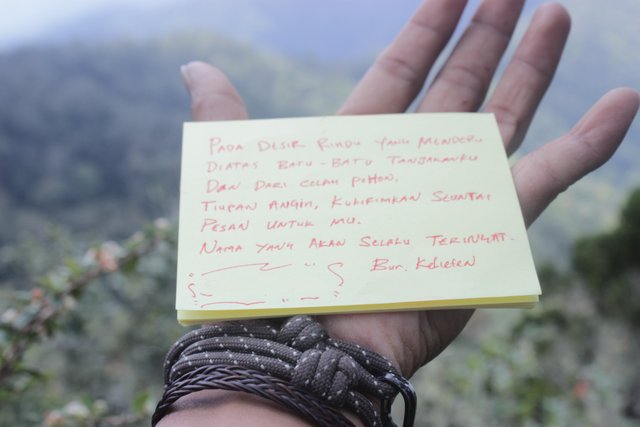 PADA DESIR RINDU YANG MENDERU
DIATAS BATU-BATU TANJAKANKU
DAN DARI CELAH POHON.
TIUPAN ANGIN, KUKIRIMKAN SEUNTAI
PESAN UNTUK MU.
NAMA YANG AKAN SELALU TERINGAT.